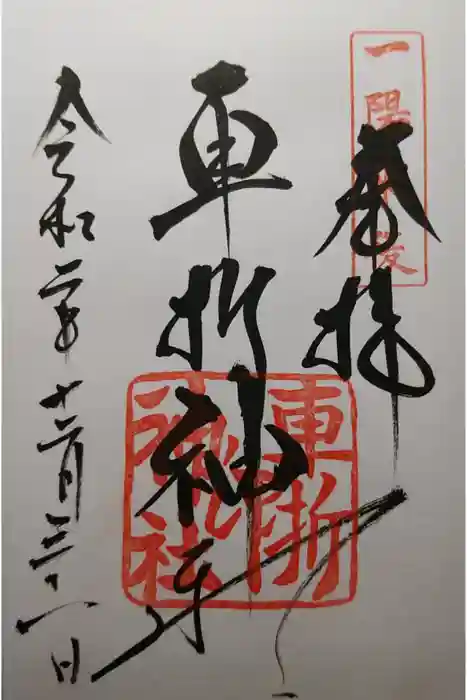 一陽来復
奉拝
車折神社
車折
神社
令和二年十二月三十一日